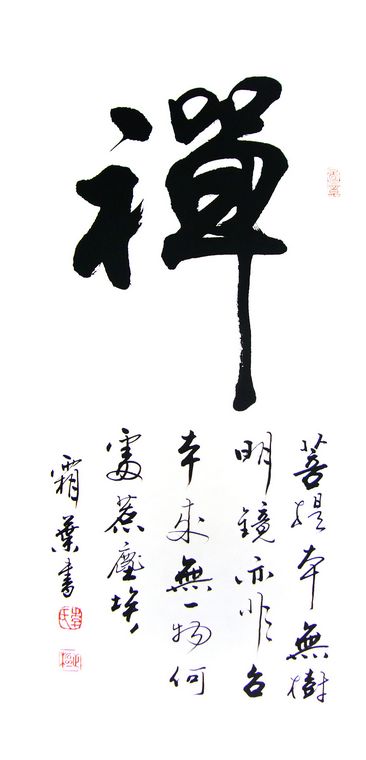 禪
菩提本無樹
明鏡亦非台
本來無一物何
處惹塵埃
霜葉書